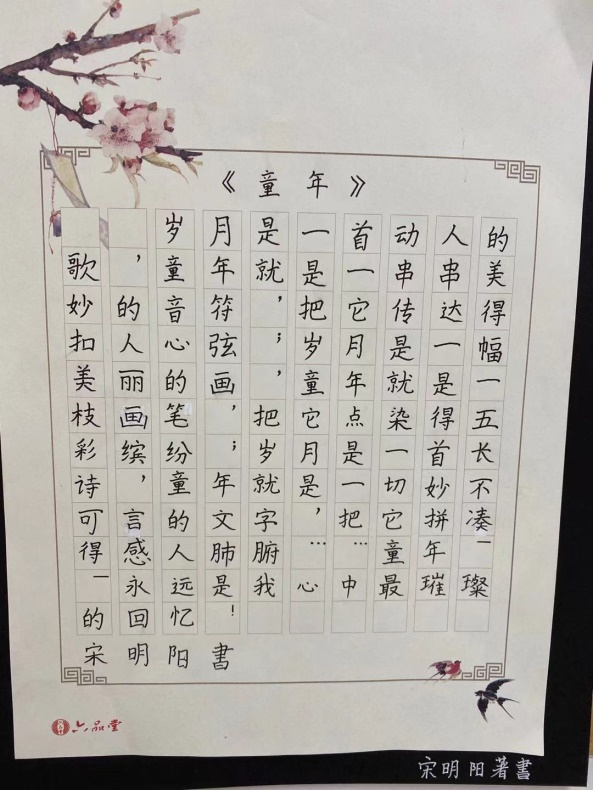 《童年》
岁月是一首动人的
歌，童年就是一串串美
妙的音符，把它传达得
扣人心弦；岁月是一幅
美丽的画，童年就是一
枝画笔，把它点染得五
彩缤纷；岁月是一首长
诗，童年就是一切妙不
可言的文字，把它拼凑
得感人肺腑……童年—
—永远是我心中最璀璨
的回忆！
宋明阳書
六品堂
宋明阳著書